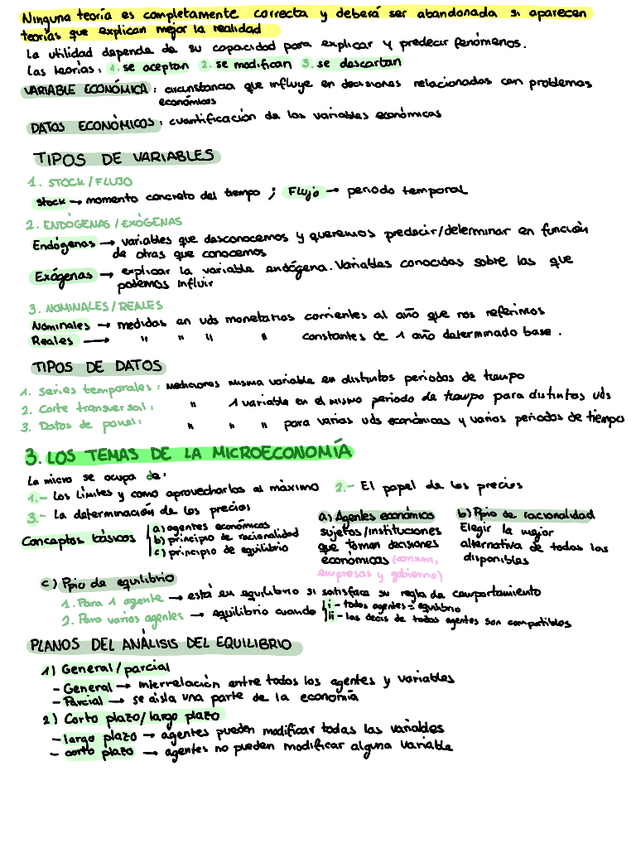 Ninguna teoría es completamente correcta y deberá ser abandonada si aparecen
teorías que explican mejor la realidad
La utilidad depende de su capacidad para explicar y predecir fenómenos.
Las teorías: 1. se aceptan 2. se modifican 3. se descartan
VARIABLE ECONÓMICA: circunstancia que influye en decisiones relacionadas con problemas
económicos
DATOS ECONÓMICOS: cuantificación de las variables económicas
TIPOS DE VARIABLES
1. STOCK/FLUJO
Stock → momento concreto del tiempo ; Flujo → periodo temporal
2. ENDÓGENAS/EXÓGENAS
Endógenas → variables que desconocemos y queremos predecir/determinar en función
de otras que conocemos
Exógenas → explicar la variable endógena. Variables conocidas sobre las que
podemos influir
3. NOMINALES/REALES
Nominales → medidas en uds monetarias corrientes al año que nos referimos
Reales → " " " " constantes de 1 año determinado base.
TIPOS DE DATOS
1. Series temporales: mediciones misma variable en distintos periodos de tiempo
2. Corte transversal: " 1 variable en el mismo periodo de tiempo para distintas uds
3. Datos de panel: " " " para varias uds económicas y varios periodos de tiempo
3. LOS TEMAS DE LA MICROECONOMÍA
La micro se ocupa de:
1.- Los límites y como aprovecharlos al máximo 2.- El papel de los precios
3.- La determinación de los precios
Conceptos básicos
a) agentes económicos
b) principio de racionalidad
c) principio de equilibrio
a) Agentes económicos
sujetos/instituciones
que toman decisiones
económicas (consum,
empresas y gobierno)
b) Ppio de racionalidad
Elegir la mejor
alternativa de todas las
disponibles
c) Ppio de equilibrio
1. Para 1 agente → está en equilibrio si satisface su regla de comportamiento
2. Para varios agentes → equilibrio cuando
i - todos agentes = equilibrio
ii - las decis de todos agentes son compatibles
PLANOS DEL ANÁLISIS DEL EQUILIBRIO
1) General/parcial
- General → interrelación entre todos los agentes y variables
- Parcial → se aísla una parte de la economía
2) Corto plazo/largo plazo
- largo plazo → agentes pueden modificar todas las variables
- corto plazo → agentes no pueden modificar alguna variable